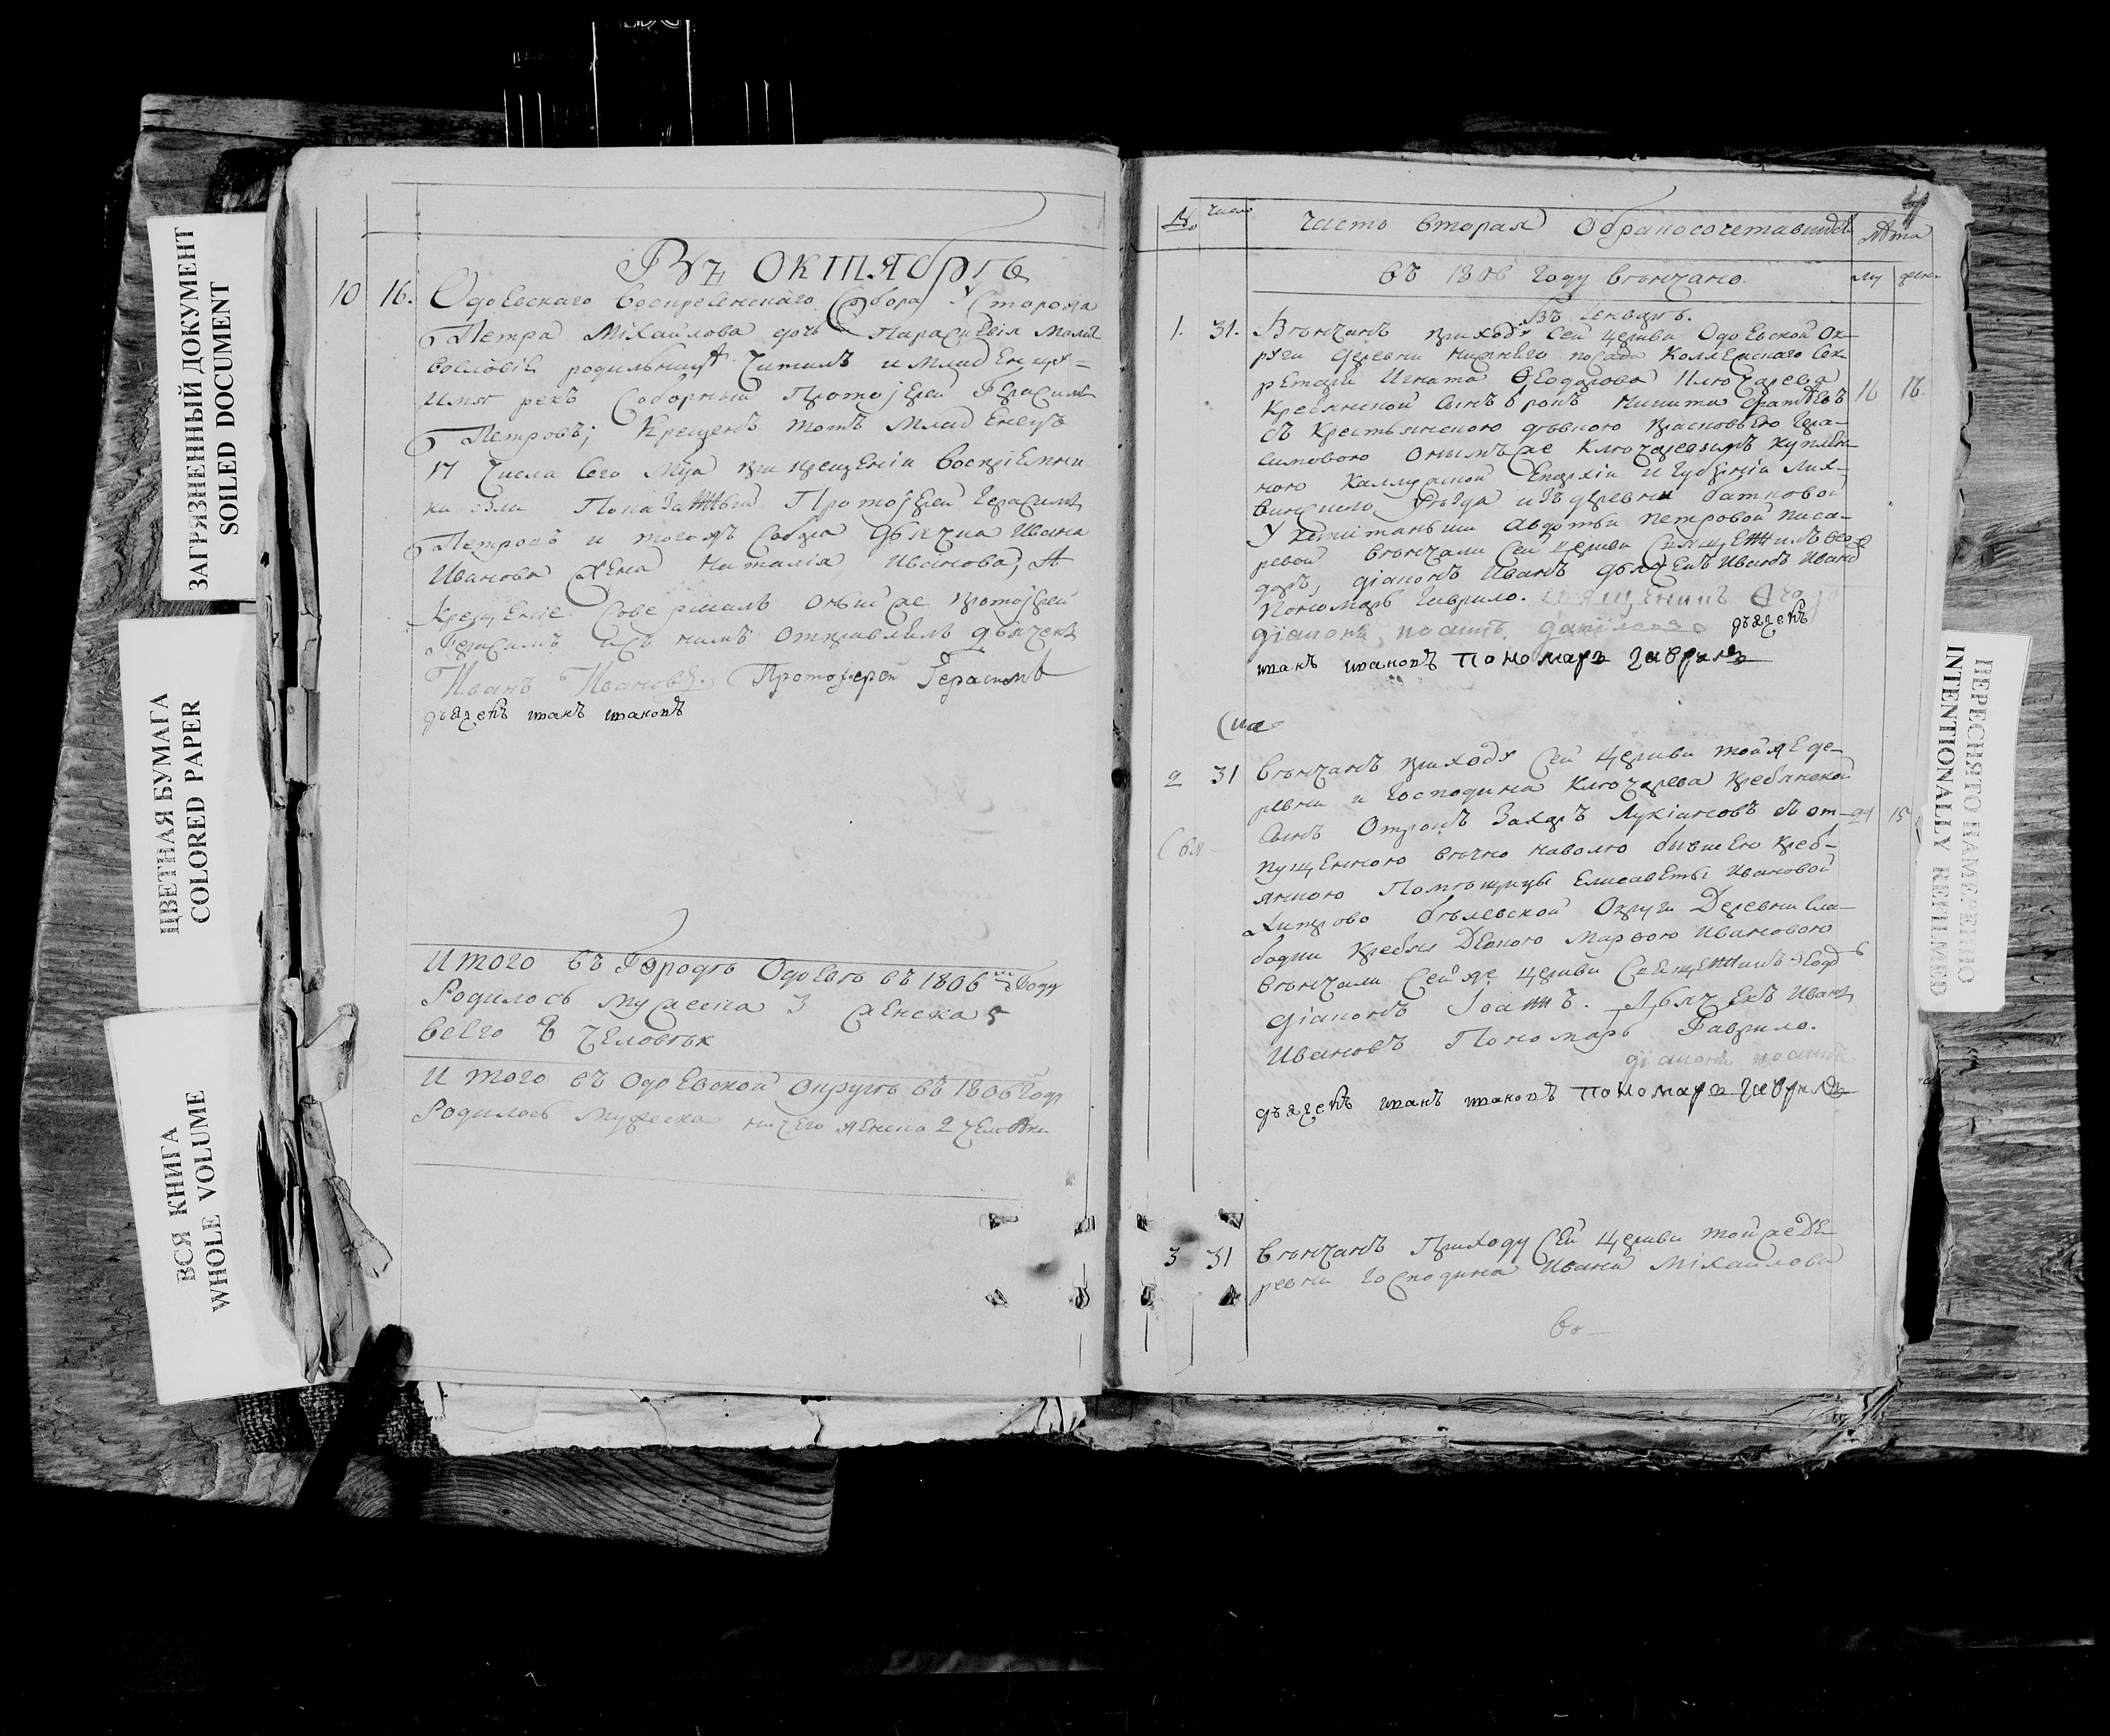 ЗАГРЯЗНЕННЫЙ ДОКУМЕНТ
SOILED DOCUMENT
ЦВЕТНАЯ БУМАГА
COLORED PAPER
ВСЯ КНИГА
WHOLE VOLUME
Въ октябрѣ
10 16. Одоевскаго Воскресенскаго Собора у сторожа
Петра Міхайлова дочь Параскевія
родильницѣ читалъ и младенцу
имя рекъ соборный протоіерей Герасимъ
Петровъ; крещенъ тотъ младенецъ
17 числа сего мца при крещеніи воспріемни
ки были протоіерей Герасимъ
Петровъ и тогожъ собора дьячка Ивана
Иванова жена Наталія Иванова; а
крещеніе совершалъ оныи же протоіерей
Герасимъ и съ нимъ отправлялъ дьячекъ
Иванъ Ивановъ. Протоіерей Герасимъ
дьячекъ иванъ ивановъ
Итого въ городѣ Одоевѣ въ 1806 м году
родилось мужеска 3 женска 5
всего 8 человѣк
Итого въ Одоевской округѣ въ 1806 году
родилось мужеска ничего женска 2 человѣки
№ число Часть вторая о бракосочетавшихся лѣта
въ 1806 году вѣнчано. му жен
Въ генварѣ.
1. 31. Вѣнчанъ приходу сей церкви Одоевской ок-
руги деревни нижнего посада коллежскаго сек
ретаря Игната Феодорова Ключарева
кребянской сынъ отрокъ Никита 16 16.
съ крестьянскою дѣвкою Гера-
симовою онымъ же Ключаревымъ куплен-
ною Калужской епархіи и губерніи Лих-
винскаго уѣзда изъ деревни
у капитанши Авдотьи Петровой Писа-
ревой вѣнчали сей церкви священникъ Фео-
доръ, діаконъ Иванъ дьячекъ Иванъ Ивано
пономарь Гаврило.
діаконъ иоаннъ дьячекъ
иванъ ивановъ пономарь Гаврилъ
2 31 Вѣнчанъ приходу сей церкви той же де-
ревни и господина Ключарева кребянской
сынъ отрокъ Захаръ Лукіановъ съ от- 24 15
пущенною вѣчно наволю бывшею креб-
янкою помѣщицы Елисаветы Ивановой
Хитрово бѣлевской округи деревни сла-
бодки Марѳою Ивановою
вѣнчали сей же церкви священникъ Ѳеодо
діаконъ Іоаннъ. Дьячекъ Иванъ
Ивановъ Пономарь Гаврило.
діаконъ иоаннъ
дьячекъ иванъ ивановъ пономарь Гаврилъ
3 31 Вѣнчанъ приходу сей церкви той же де
ревни господина Ивана Міхайлова
ПЕРЕСНЯТО НАМЕРЕННО
INTENTIONALLY REFILMED